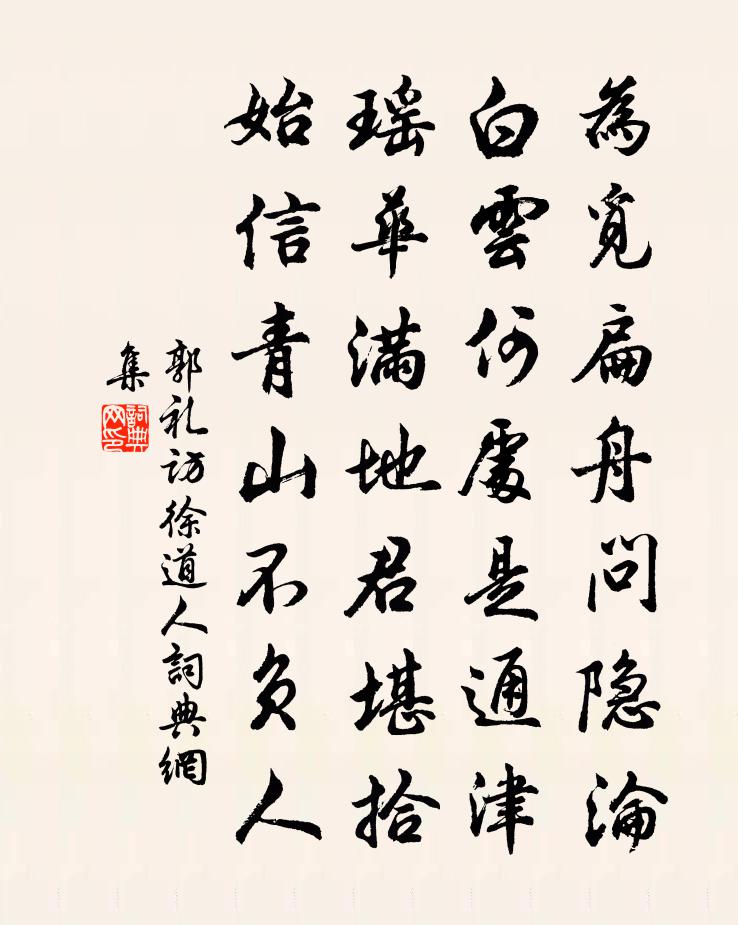 為覓扁舟問隐淪
白雲何處是通津
瑶華滿地君堪拾
始信青山不負人
郭礼訪徐道人詞典網
集
詞典
网印